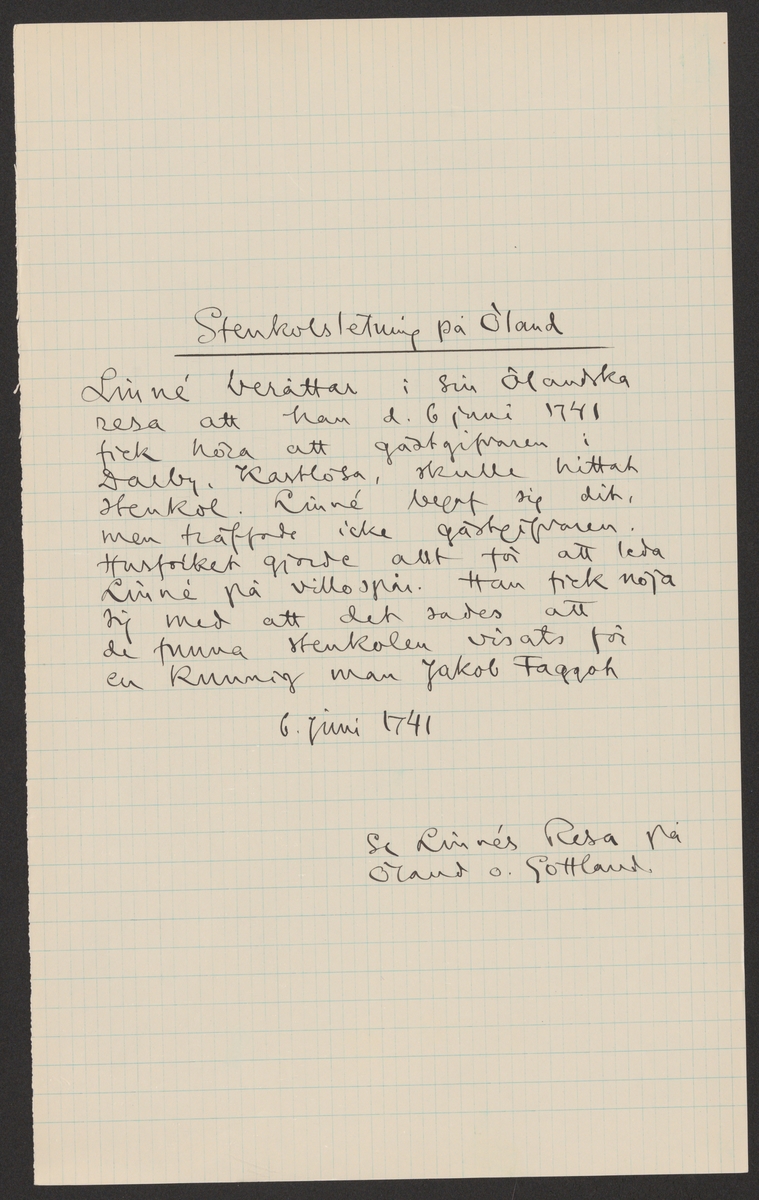 Stenkolsletning på Öland
Linné berättar i sin Öländska
resa att han d. 6 juni 1741
fick höra att gästgifvaren i
Dalby, Kastlösa, skulle hittat
stenkol. Linné begaf sig dit,
men träffade icke gästgifvaren.
Husfolket gjorde allt för att leda
Linné på villospår. Han fick nöja
sig med att det sades att
de funna stenkolen visats för
en kunnig man Jakob Faggot
6. juni 1741
Se Linnés Resa på
Öland o. Gottland.